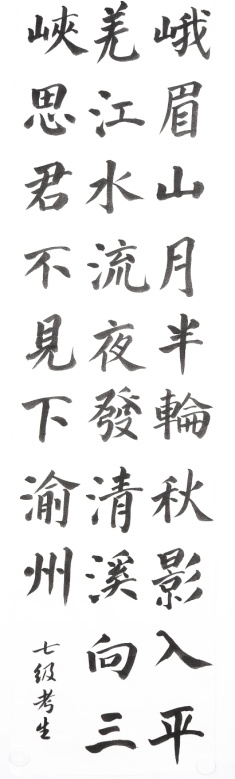 峨眉山月半輪秋影入平
羌江水流夜發清溪向三
峽思君不見下渝州
七级考生